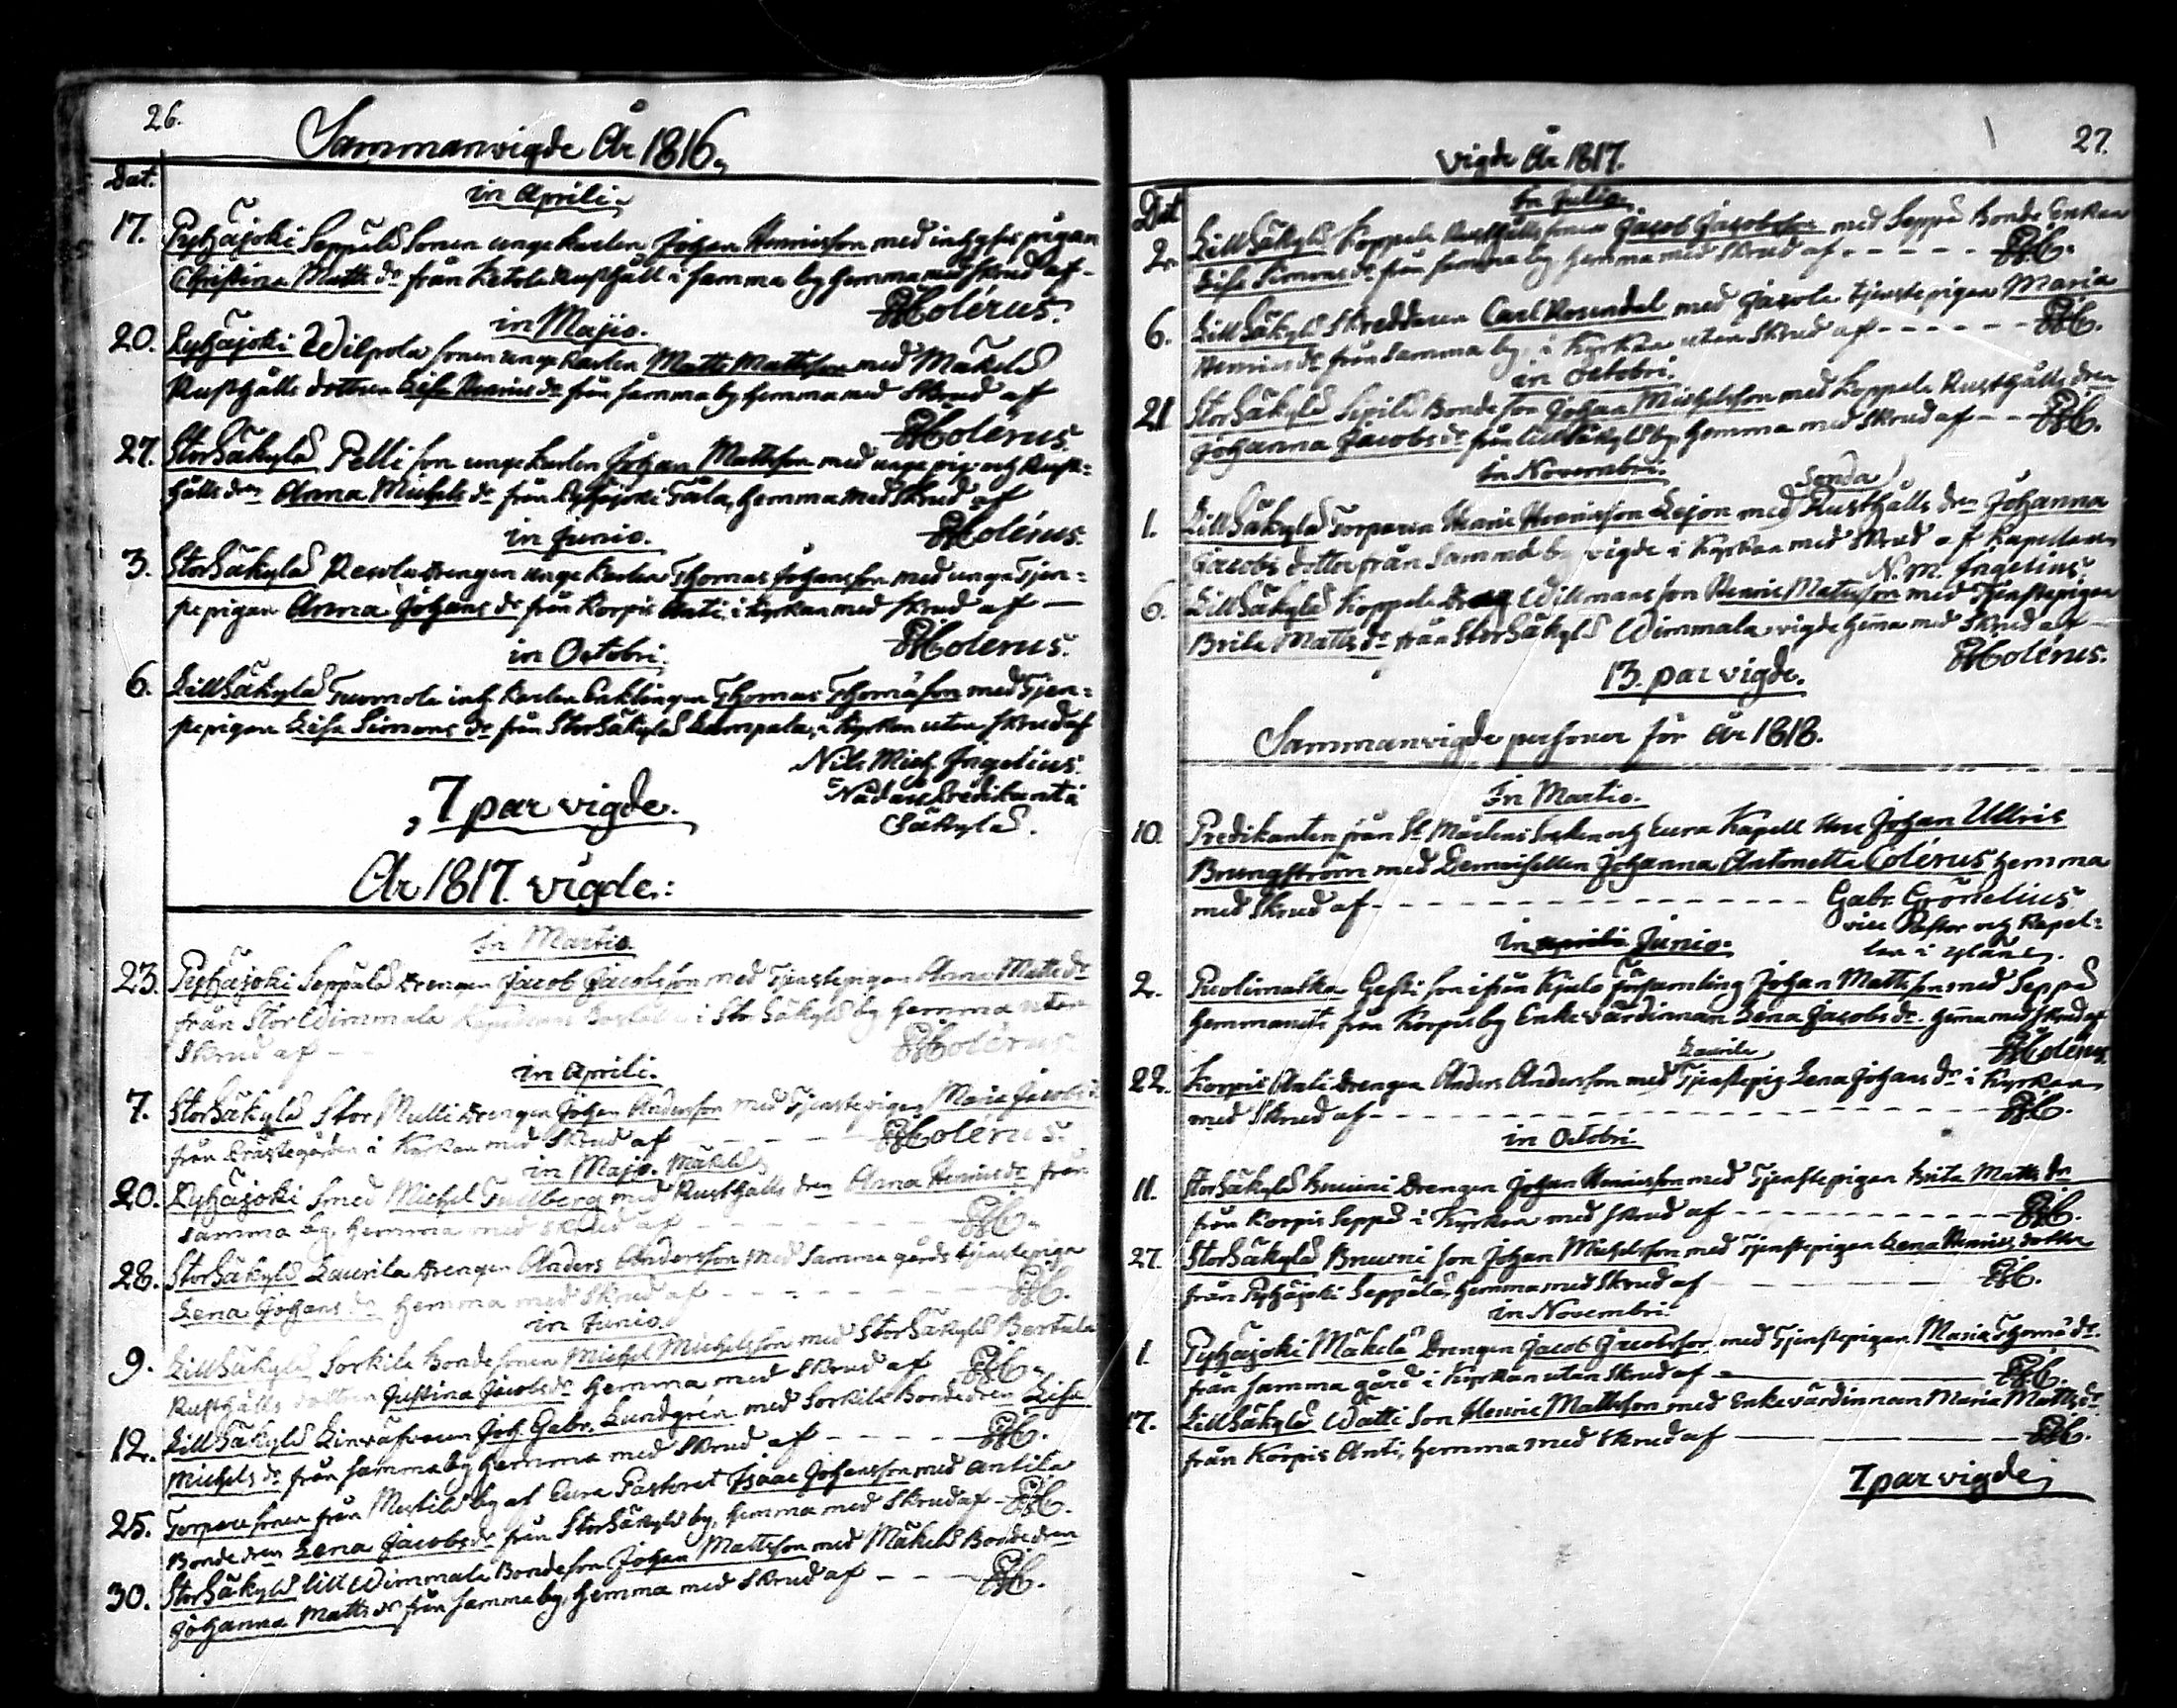 26.
Sammanvigde År 1816.
Dat.
in Aprili.
17. Pyhäjoki Seppälä Sonen unge karlen Johan Henricsson med inhyses pigan
Christina Matts dr från Ketola Rusthåll i samma by hemma med skrud af -
Colérus.
in Majo.
20. Pyhäjoki Wilpola sonen unge karlen Matts Mattsson med Mäkelä
Rusthålls dottren Lisa Henrics dr från samma by hemma med Skrud af
Colérus.
27. StorSäkylä Pelli son unge karlen Johan Mattsson med unge pig. och Rust-
hålls dren Anna Michels dr från Pyhäjoki Tåla, hemma med Skrud af
Colérus.
in Junio.
3. StorSäkylä drengen unge karlen Thomas Johansson med unge Tjen-
ste pigan Anna Johans dr från Korpis Anti, i kyrkan med skrud af —
Colerus.
in Octobri.
6. LillSäkylä Tuomola inh. karlen Enklingen Thomas Thomæson med Tjen-
stepigan Lisa Simons dr från StorSäkylä Lampala, i kyrkan utan skrud af
Nils Mich. Ingelius.
Nådårs Predikant i
Säkylä.
7 par vigde.
År 1817. vigde:
in Martio.
23. Pyhäjoki Seppälä drengen Jacob Jacobsson med Tjenstepigan Anna Matts dr
från Stor Wimmala i StorSäkylä by hemma utan
skrud af —
Colérus.
in Aprili.
7. StorSäkylä Stor Mulli drengen Johan Andersson med Tjenstepigan Maria Jacobs dr
från Prästegården i Kyrkan med Skrud af — Colérus.
in Majo. Mäkelä
20. Pyhäjoki Smed Michel Tullberg med Rusthålls dren Anna Henrics dr från
samma by, hemma med skrud af - - - -
28. StorSäkylä Laurila drengen Anders Andersson med samma gårds tjenstepiga
Lena Johans dr hemma med Skrud af - - - -
in Junio.
9. LillSäkylä Sorkila Bondesonen Michel Michelsson med StorSäkylä Bertula
Rusthålls dottren Justina Jacobs dr hemma med skrud af
12. LillSäkylä Linväfvaren Joh. Gabr. Lundgrén med Sorkila Bonde dren Lisa
Michels dr från samma by hemma med skrud af - - - -
25. Torpare sonen från by af Eura Pastorat Isaac Johansson med Antila
Bonde dren Lena Jacobs dr från StorSäkylä by, hemma med Skrud af -
30. StorSäkylä lill Wimmala Bondeson Johan Mattsson med Mäkelä Bonde dren
Johanna Matts dr från samma by, hemma med skrud af - - -
27.
vigde År 1817.
Dat
In Julio.
2. LillSäkylä Koppala Rusthållssonen Jacob Jacobsson med Seppä Bonde Enkan
Lisa Simons dr från samma by hemma med Skrud af - - - - -
6. LillSäkylä Skreddaren Carl Rosendal med Jacola tjenstepigan Maria
Henrics dr från samma by, i Kyrkan utan Skrud af - - - - - -
in Octobri.
21 StorSäkylä Sipilä Bondeson Johan Michelsson med Koppala Rusthålls dren
Johanna Jacobs dr från LillSäkylä by, hemma med skrud af - -
in Novembri.
Sonda
1. LillSäkylä Torparen Henric Henricsson Lejon med Rusthålls dren Johanna
Jacobs dotter från samma by vigde i kyrkan med skrud af Kapellanen
N. M. Ingelius.
6. LillSäkylä Koppala Willmans son Henric Matsson med Tjenstepigan
Brita Matts dr från StorSäkylä Wimmala, vigde hemma med Skrud af —
Colérus.
13. par vigde.
Sammanvigde personer för År 1818.
In Martio.
10. Predikanten från St. Mårtens Socken och Eura Kapell Herr Johan Ullric
Brungström med Demoisellen Johanna Antonetta Colérus hemma
med Skrud af - - - - Gabr. Grönelius
vice Pastor och Kapel-
lan i Yläne.
in Aprili Junio.
2. Puolimatka son ifrån Kjulo församling Johan Mattsson med Seppä
hemmanets från Korpis by Enkevärdinnan Lena Jacobs dr. hemma med skrud af
Colérus.
Laurila
22. Korpis Anti drengen Anders Andersson med Tjenstepig Lena Johans dr i Kyrkan
med Skrud af - - - -
in Octobri.
11. StorSäkylä Bruuni drengen Johan Henricsson med Tjenstepigan Brita Matts dr
från Korpis Seppä i Kyrkan med skrud af - - - -
27. StorSäkylä Bruuni son Johan Michelsson med Tjenstepigan Lena Henrics dotter
från Pyhäjoki Seppälä, hemma med Skrud af —
in Novembri.
1. Pyhäjoki Mäkelä Drengen Jacob Jacobsson med Tjenstepigan Maria Thomæ dr.
från samma gård i Kyrkan utan Skrud af —
17. LillSäkylä Watti Son Henric Mattsson med Enkevärdinnan Maria Matts dr
från Korpis Anti, hemma med skrud af —
7 par vigde